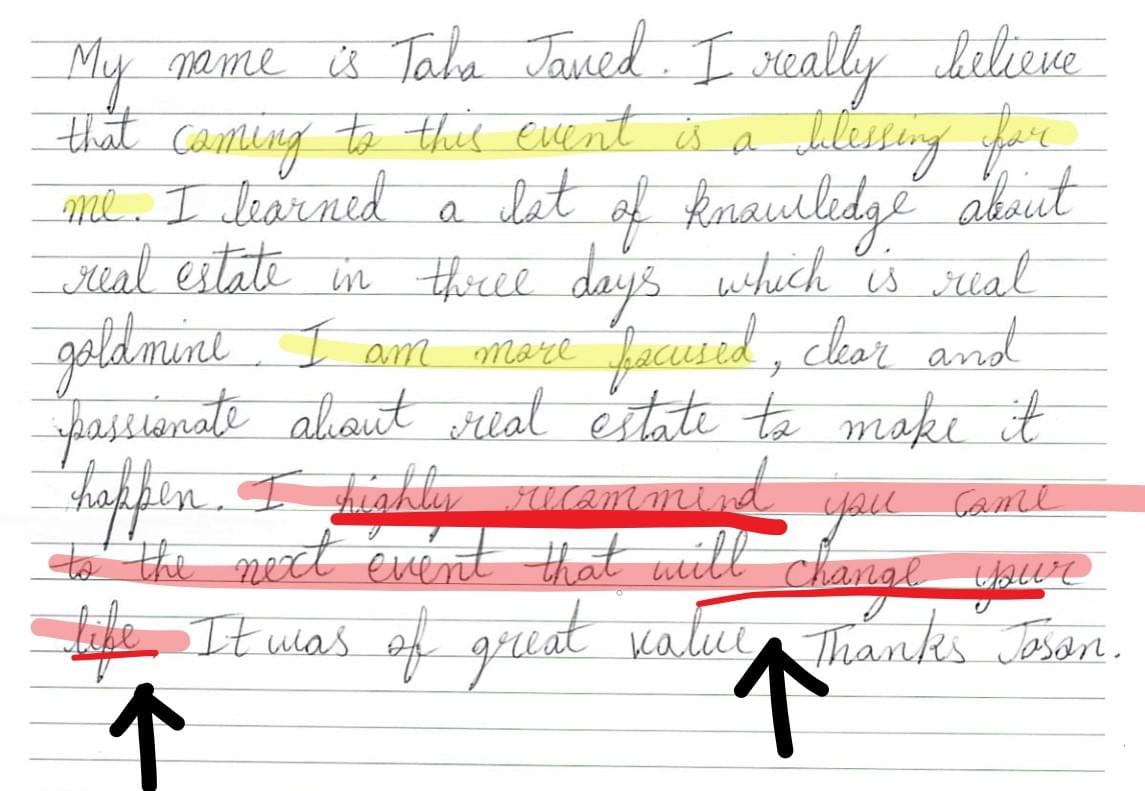 My name is Taha Javed. I really believe
that coming to this event is a blessing for
me. I learned a lot of knowledge about
real estate in three days which is real
goldmine. I am more focused, clear and
passionate about real estate to make it
happen. I highly recommend you come
to the next event that will change your
life It was of great value Thanks Jason.